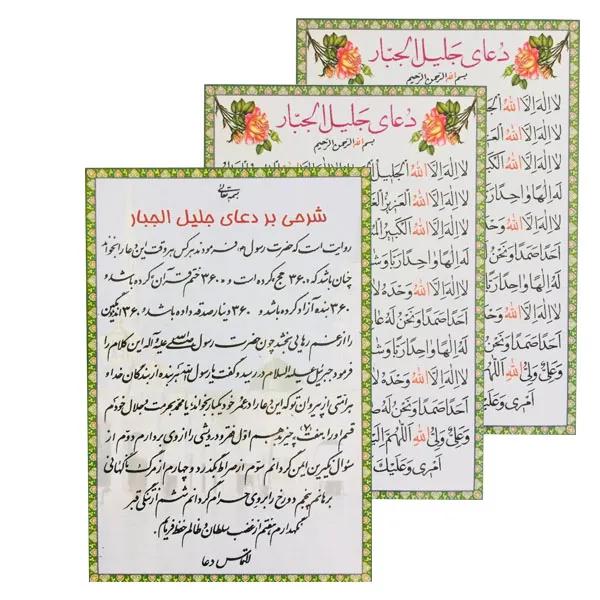 بسمه تعالی
شرحی بر دعای جلیل الجبار
روایت است که حضرت رسول (ص) فرمودند هر کس هر وقت این دعا را بخواند
چنان باشد که ۳۶۰ حج کرده است و ۳۶۰ ختم قرآن کرده باشد و
۳۶۰ بنده آزاد کرده باشد و ۳۶۰ دینار صدقه داده باشد و ۳۶۰ غمگین
را از غم رهایی بخشد چون حضرت رسول صلی الله علیه و آله این کلام را
فرمود جبرئیل علیه السلام در رسید و گفت یا رسول الله هر بنده از بندگان خدا و
هر امتی از پیروان تو که این دعا را در عمر خود یکبار بخواند یا محمد بحرمت و جلال خودم
قسم او را هفت (۷) چیز بدهم اول فقر و درویشی را از وی بردارم دوم از
سؤال نکیرین ایمن گردانم سوم از صراط بگذرد و چهارم از مرگ ناگهانی
برهانم پنجم دوزخ را بر وی حرام گردانم ششم از تنگی قبر
نگهدارم هفتم از غضب سلطان و ظالم حفظ فرمایم.
التماس دعا
دعای جلیل الجبار
بسم الله الرحمن الرحیم
لا اله الا الله الجلیل
لا اله الا الله العزیز
لا اله الا الله الکبیر
له الها واحدا ربا و
لا اله الا الله وحده
احدا صمدا و نحن له
له الها واحدا ربا و
لا اله الا الله وحده
احدا صمدا و نحن له
و علی ولی الله اللهم
امری و علیک
دعای جلیل الجبار
بسم الله الرحمن الرحیم
لا اله الا الله
لا اله الا الله
لا اله الا الله
له الها واحدا
لا اله الا الله
احدا صمدا و نحن
له الها واحدا
لا اله الا الله
احدا صمدا و نحن
و علی ولی الله
امری و علیک